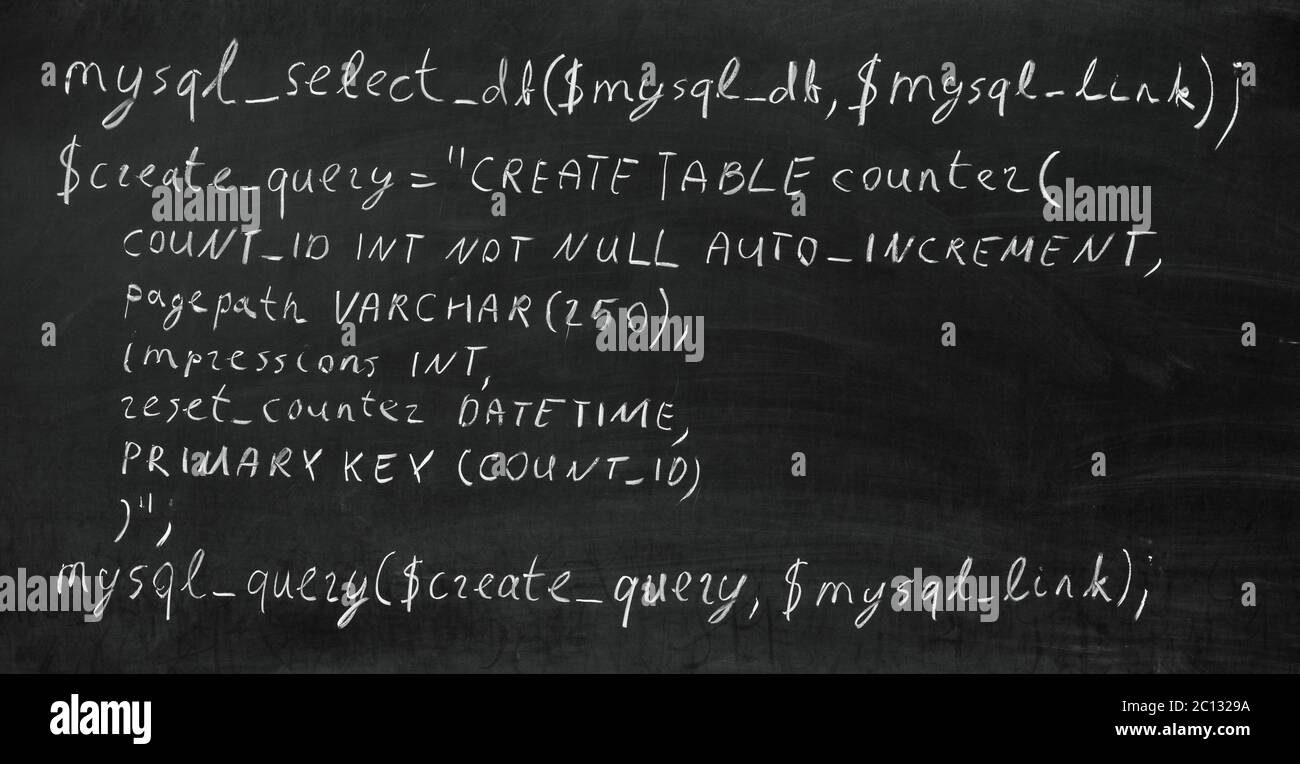 mysql_select_db($mysql_db, $mysql_link);
$create_query = "CREATE TABLE counter(
COUNT_ID INT NOT NULL AUTO_INCREMENT,
pagepath VARCHAR(250),
impressions INT,
reset_counter DATETIME,
PRIMARY KEY (COUNT_ID)
)";
mysql_query($create_query, $mysql_link);
a alamy
alamy
Image ID: 2C1329A
www.alamy.com